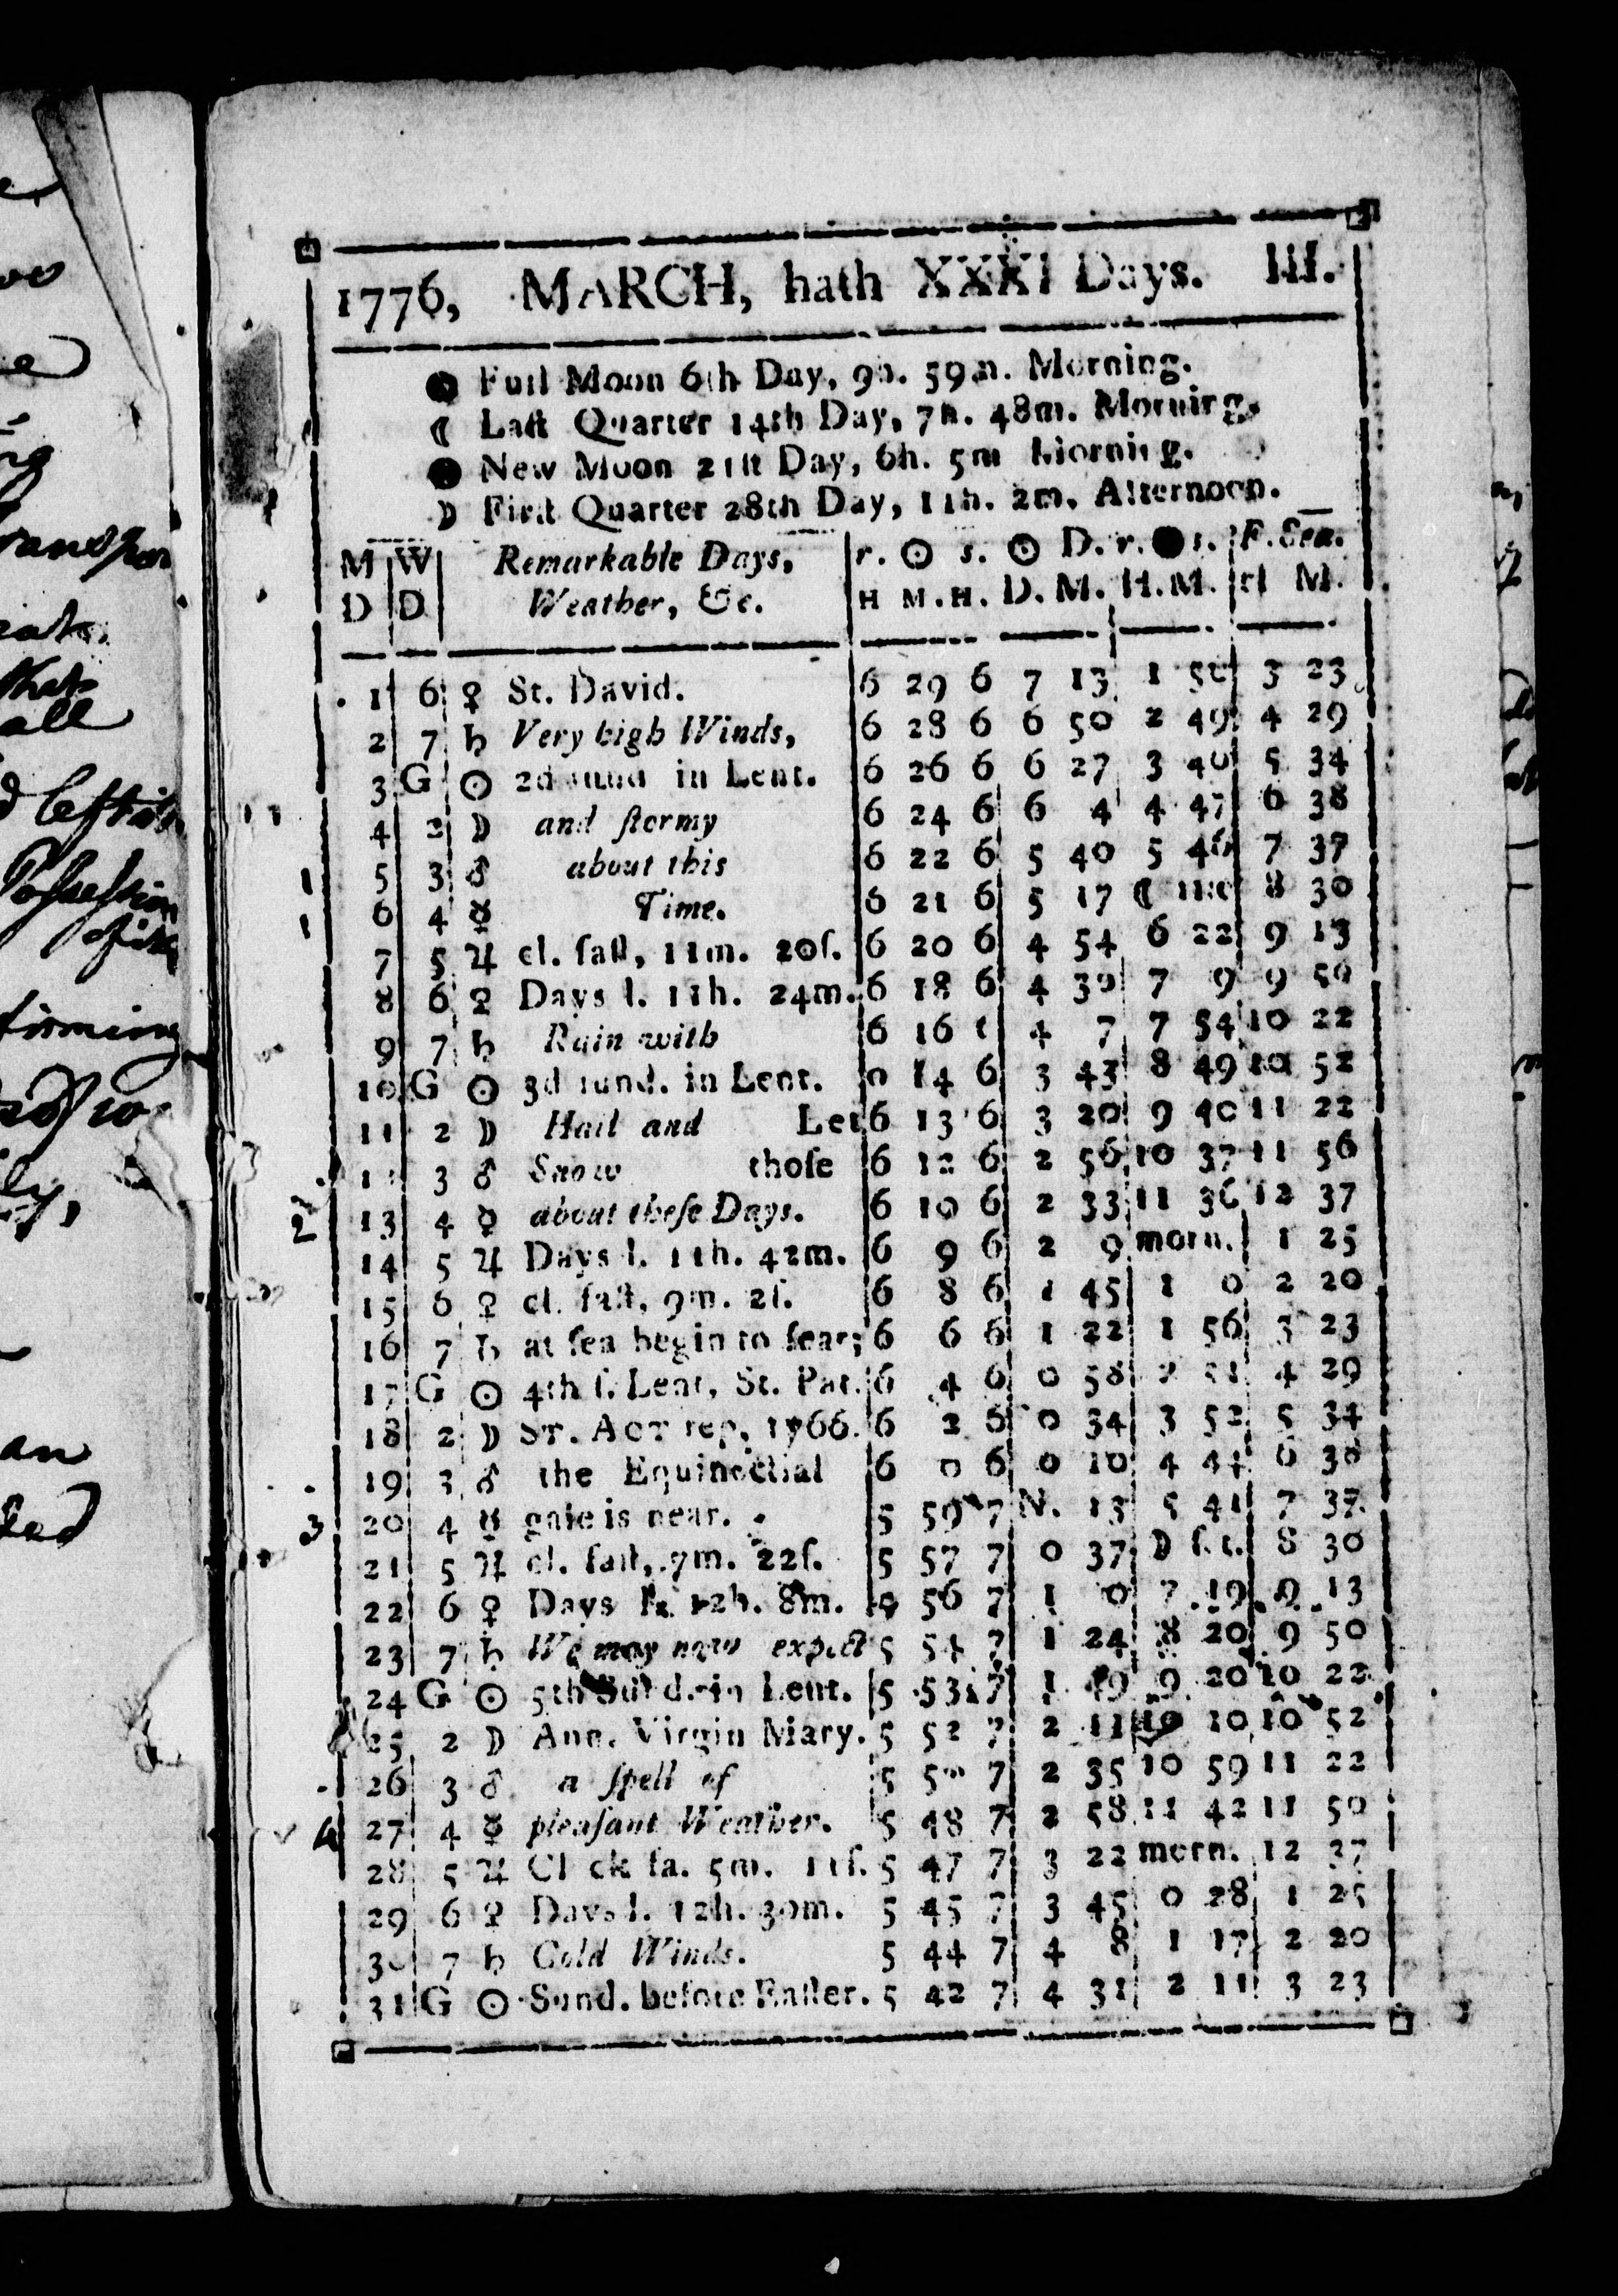 1776, MARCH, hath XXXI Days. III.
Full Moon 6th Day, 9h. 59m. Morning.
☾ Laſt Quarter 14th Day, 7h. 48m. Morning.
New Moon 21ſt Day, 6h. 5m Morning.
☽ Firſt Quarter 28th Day, 11h. 2m. Afternoon.
M W Remarkable Days, r. ☉ s. ☉ D. r. ● s. F. Sea.
D D Weather, &c. H M. H. D. M. H. M. H M.
1 6 ♀ St. David. 6 29 6 7 13 1 3 23
2 7 ♄ Very high Winds, 6 28 6 6 50 2 49 4 29
3 G ☉ 2d ſund in Lent. 6 26 6 6 27 3 40 5 34
4 2 ☽ and ſtormy 6 24 6 6 4 4 47 6 38
5 3 ♂ about this 6 22 6 5 40 5 46 7 37
6 4 ☿ Time. 6 21 6 5 17 ☾ riſe 8 30
7 5 ♃ cl. faſt, 11m. 20ſ. 6 20 6 4 54 6 22 9 13
8 6 ♀ Days l. 11h. 24m. 6 18 6 4 30 7 9 9 50
9 7 ♄ Rain with 6 16 6 4 7 7 54 10 22
10 G ☉ 3d ſund. in Lent. 6 14 6 3 43 8 49 10 52
11 2 ☽ Hail and Let 6 13 6 3 20 9 40 11 22
12 3 ♂ Snow thoſe 6 12 6 2 56 10 37 11 56
2 13 4 ☿ about theſe Days. 6 10 6 2 33 11 36 12 37
14 5 ♃ Days l. 11h. 42m. 6 9 6 2 9 morn. 1 25
15 6 ♀ cl. faſt, 9m. 2ſ. 6 8 6 1 45 1 0 2 20
16 7 ♄ at ſea begin to fear; 6 6 6 1 22 1 56 3 23
17 G ☉ 4th ſ. Lent, St. Pat. 6 4 6 0 58 2 51 4 29
18 2 ☽ ST. ACT rep, 1766. 6 2 6 0 34 3 52 5 34
19 3 ♂ the Equinoctial 6 0 6 0 10 4 44 6 38
3 20 4 ☿ gale is near. 5 59 7 N. 13 5 41 7 37
21 5 ♃ cl. faſt, 7m. 22ſ. 5 57 7 0 37 ☽ ſet. 8 30
22 6 ♀ Days l. 12h. 8m. 5 56 7 1 0 7 19 9 13
23 7 ♄ We may now expect 5 54 7 1 24 8 20 9 50
24 G ☉ 5th Sund. in Lent. 5 53 7 1 49 9 20 10 22
25 2 ☽ Ann. Virgin Mary. 5 52 7 2 11 10 10 10 52
26 3 ♂ a ſpell of 5 50 7 2 35 10 59 11 22
4 27 4 ☿ pleaſant Weather. 5 48 7 2 58 11 42 11 50
28 5 ♃ Clock fa. 5m. 11ſ. 5 47 7 3 22 morn. 12 37
29 6 ♀ Days l. 12h. 30m. 5 45 7 3 45 0 28 1 25
30 7 ♄ Cold Winds. 5 44 7 4 8 1 17 2 20
31 G ☉ Sund. before Eaſter. 5 42 7 4 31 2 11 3 23